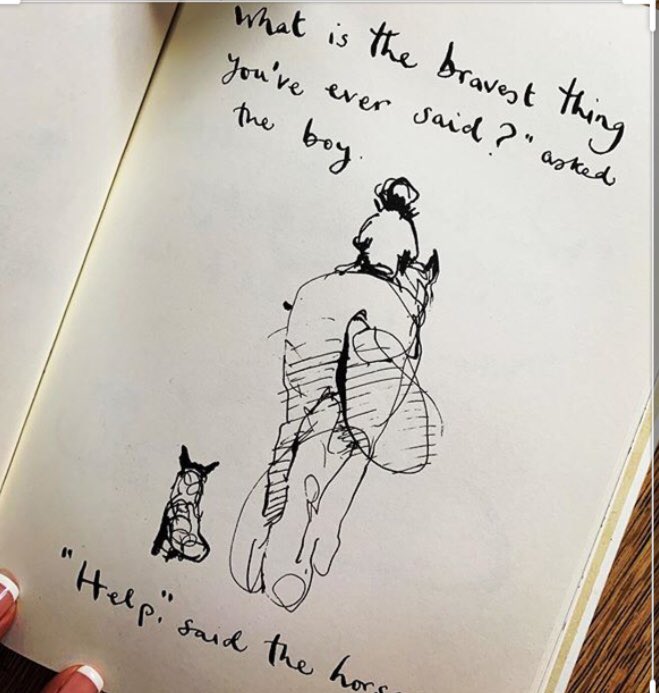 What is the bravest thing
you've ever said?" asked
the boy.
"Help." said the